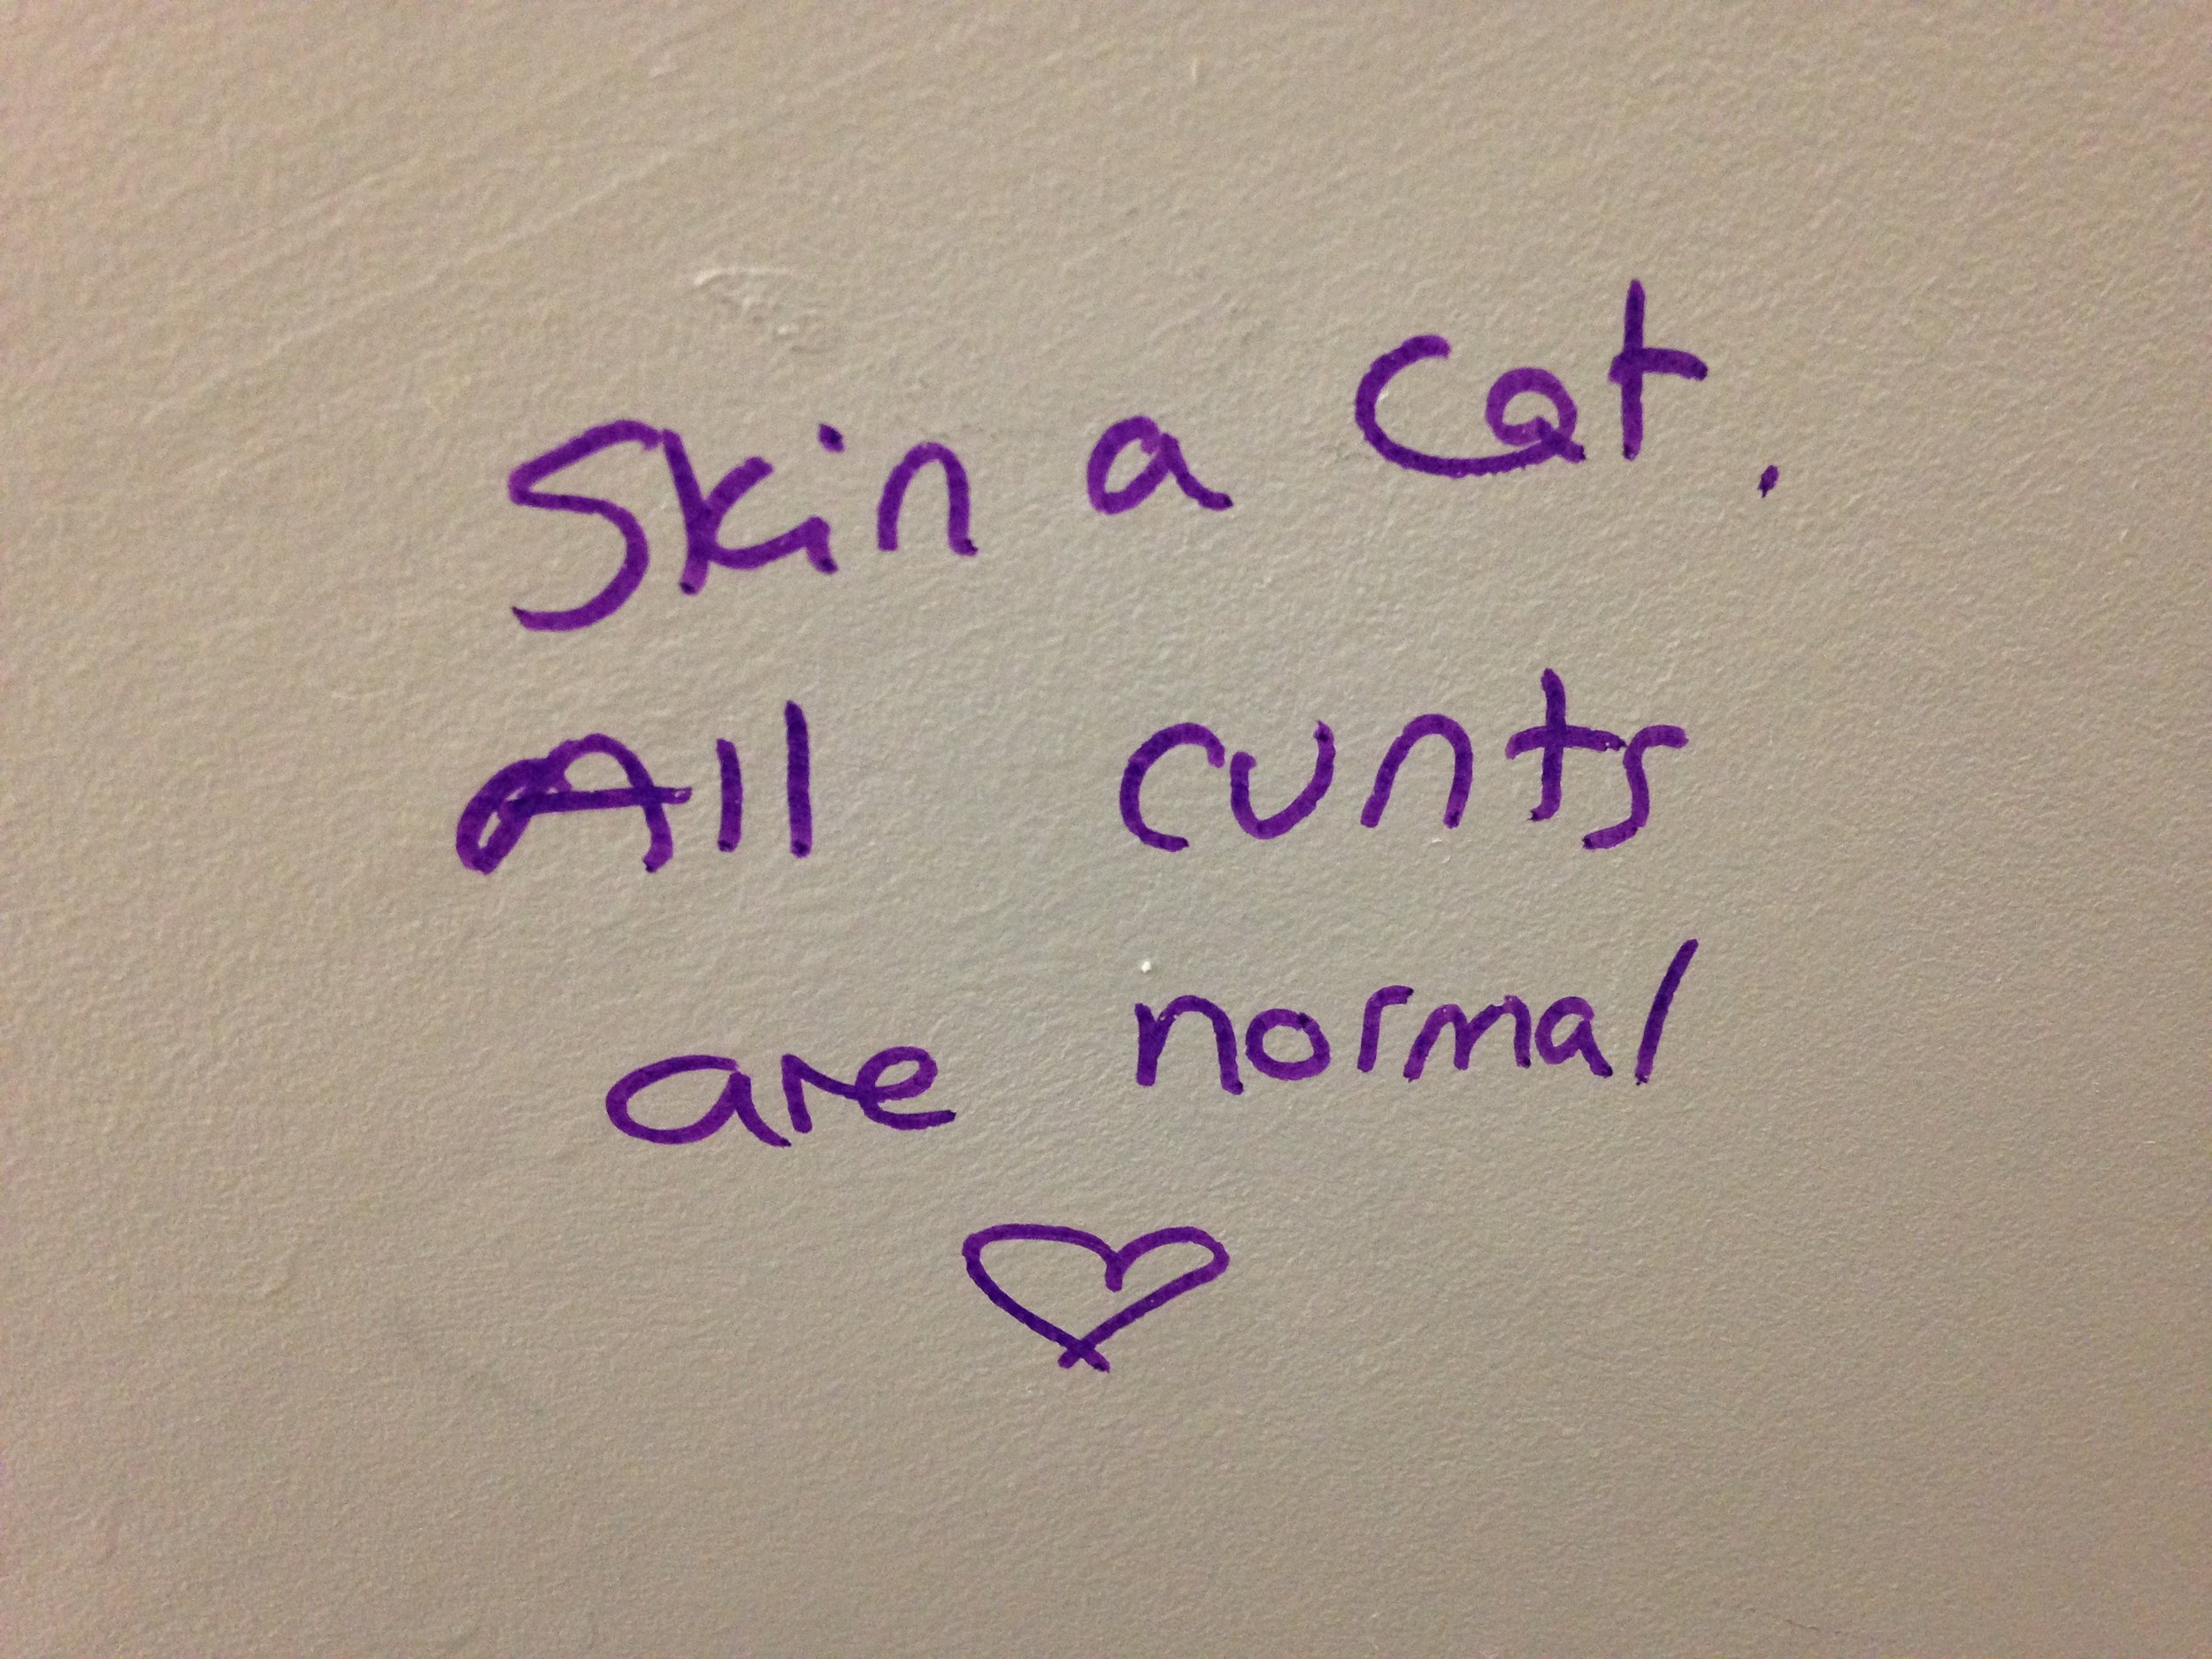 Skin a Cat.
All cunts
are normal